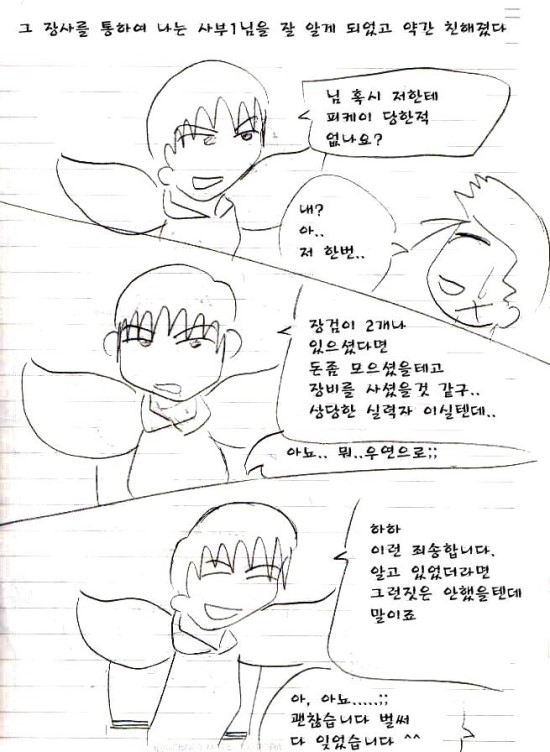 그 장사를 통하여 나는 사부1님을 잘 알게 되었고 약간 친해졌다
님 혹시 저한테
피케이 당한적
없나요?
내?
아..
저 한번..
장검이 2개나
있으셨다면
돈좀 모으셨을테고
장비를 사셨을것 같구..
상당한 실력자 이실텐데..
아뇨.. 뭐..우연으로;;
하하
이런 죄송합니다.
알고 있었더라면
그런짓은 안했을텐데
말이죠
아, 아뇨.....;;
괜찮습니다 벌써
다 잊었습니다 ^^